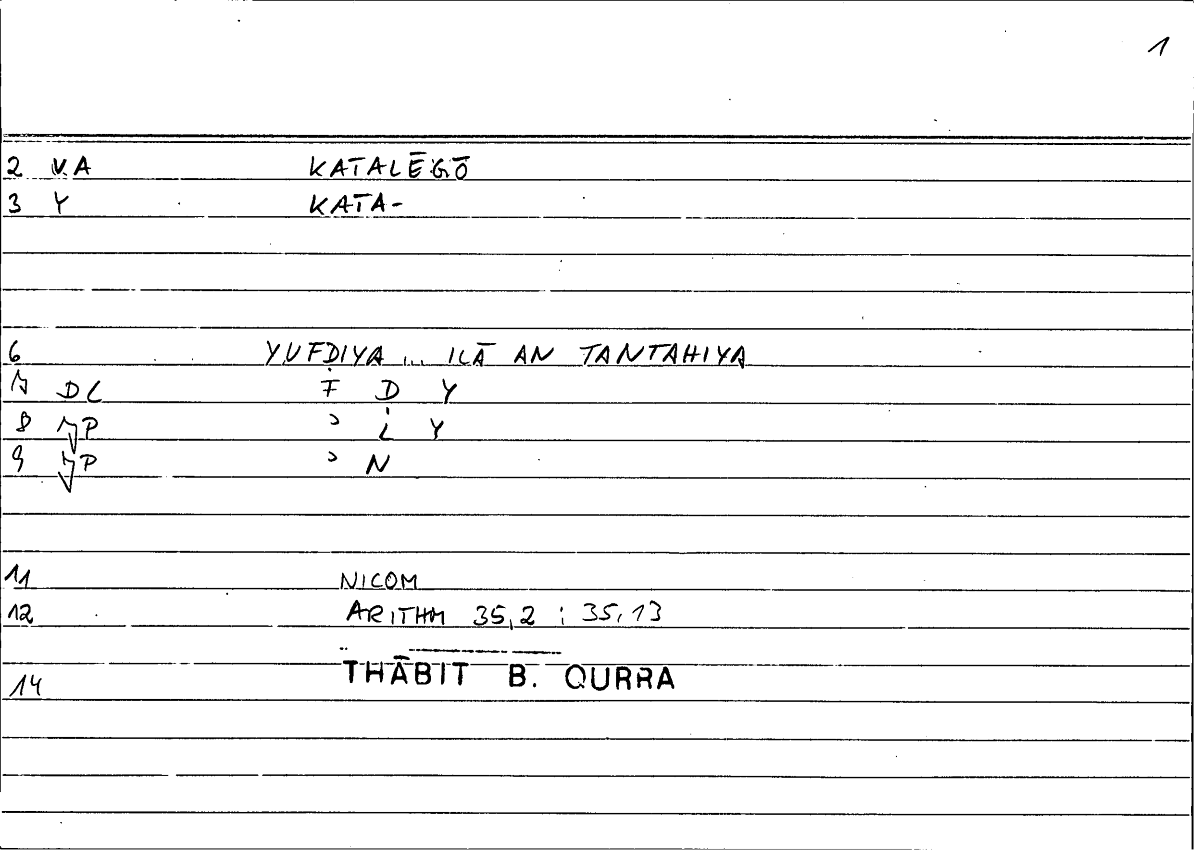 1
2 VA KATALĒGŌ
3 Y KATA-
6 YUFḌIYA ... ILĀ AN TANTAHIYA
7 DL F Ḍ Y
8 P ʾ L Y
9 P ʾ N
11 NICOM
12 ARITHM 35,2 ; 35,13
14 THĀBIT B. QURRA